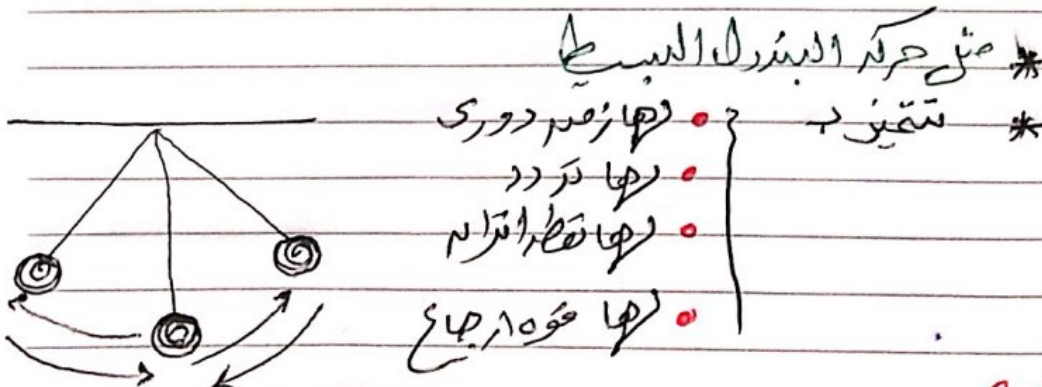 * مثل حركة البندول البسيط
* تتميز بـ
• لها زمن دورى
• لها تردد
• لها نقطه اتزان
• لها قوه ارجاع